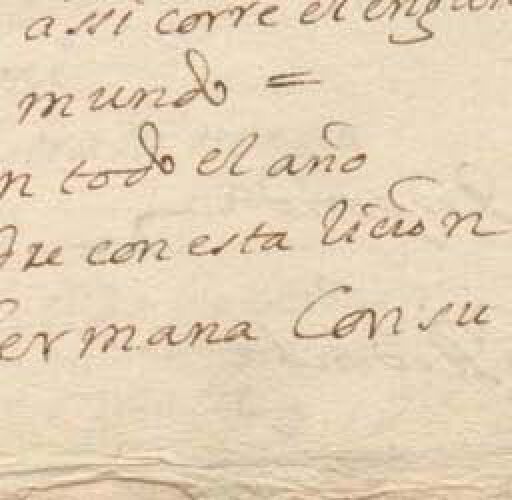 assi corre el
mundo =
n todo el año
dre con esta licion
hermana Con su